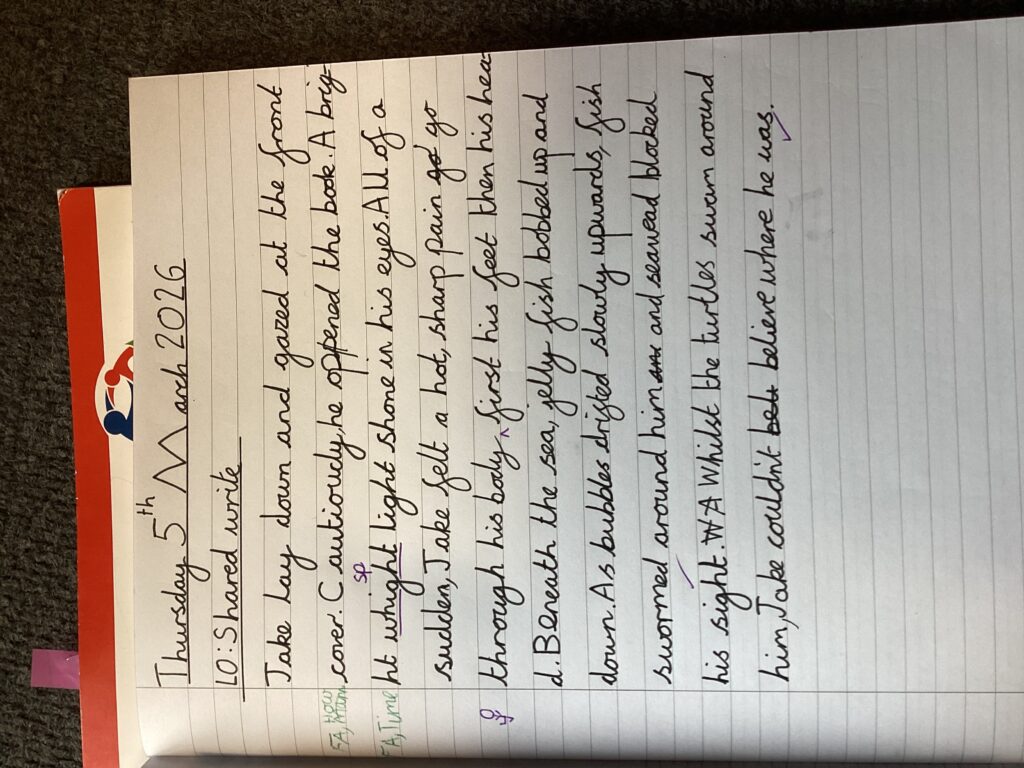 Thursday 5th March 2026
LO: Shared write
Jake lay down and gazed at the front
cover. Cautiously, he oppened the book. A brig-
ht whight light shone in his eyes. All of a
sudden, Jake felt a hot, sharp pain go go
through his body ^ first his feet then his hea-
d. Beneath the sea, jelly fish bobbed up and
down. As bubbles drifted slowly upwards, fish
swormed around him and seawead blocked
his sight. A Whilst the turtles swam around
him, Jake couldn't believe where he was.
sp
FA, How
FA, Time